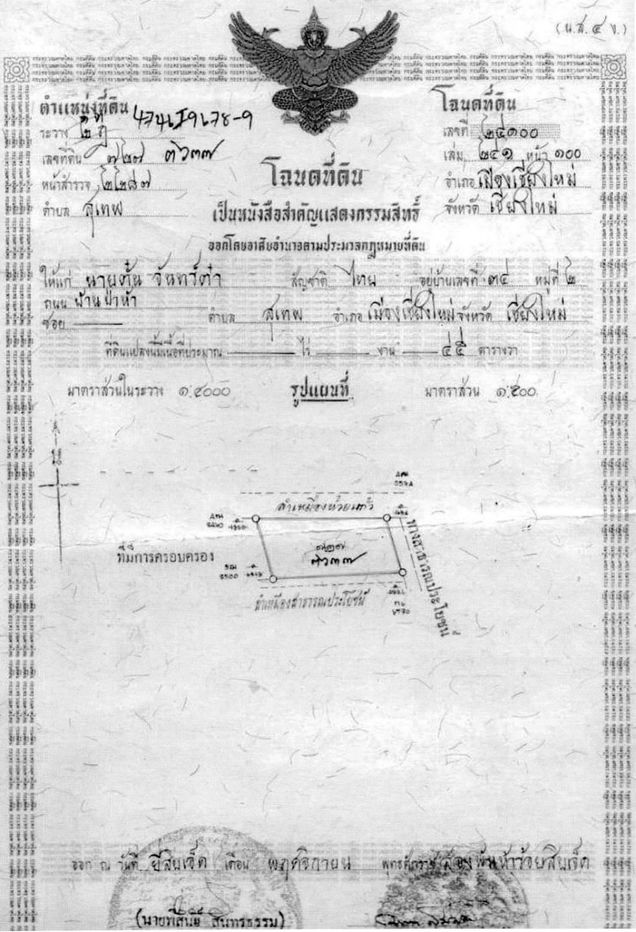 (น.ส.๔ ข.)
ตำแหน่งที่ดิน
ระวาง
เลขที่ดิน ๗๒๗
หน้าสำรวจ ๒๒๘๗
ตำบล สุเทพ
โฉนดที่ดิน
เลขที่ ๒๔๑๐๐
เล่ม ๒๔๑ หน้า ๑๐๐
อำเภอ เมืองเชียงใหม่
จังหวัด เชียงใหม่
โฉนดที่ดิน
เป็นหนังสือสำคัญแสดงกรรมสิทธิ์
ออกโดยอาศัยอำนาจตามประมวลกฎหมายที่ดิน
ให้แก่ นายตุ้น จันทร์ต๋า สัญชาติ ไทย อยู่บ้านเลขที่ ๓๔ หมู่ที่ ๒
ถนน บ้านป่าห้า
ซอย ตำบล สุเทพ อำเภอ เมืองเชียงใหม่ จังหวัด เชียงใหม่
ที่ดินแปลงนี้มีเนื้อที่ประมาณ ไร่ งาน ๔๕ ตารางวา
มาตราส่วนในระวาง ๑:๔๐๐๐ รูปแผนที่ มาตราส่วน ๑:๕๐๐
น
ลำเหมืองห้วยแก้ว
ที่มีการครอบครอง
๗๒๗
ทางสาธารณประโยชน์
ลำเหมืองสาธารณประโยชน์
ออก ณ วันที่ ยี่สิบเจ็ด เดือน พฤศจิกายน พุทธศักราช สองพันห้าร้อยสิบเจ็ด